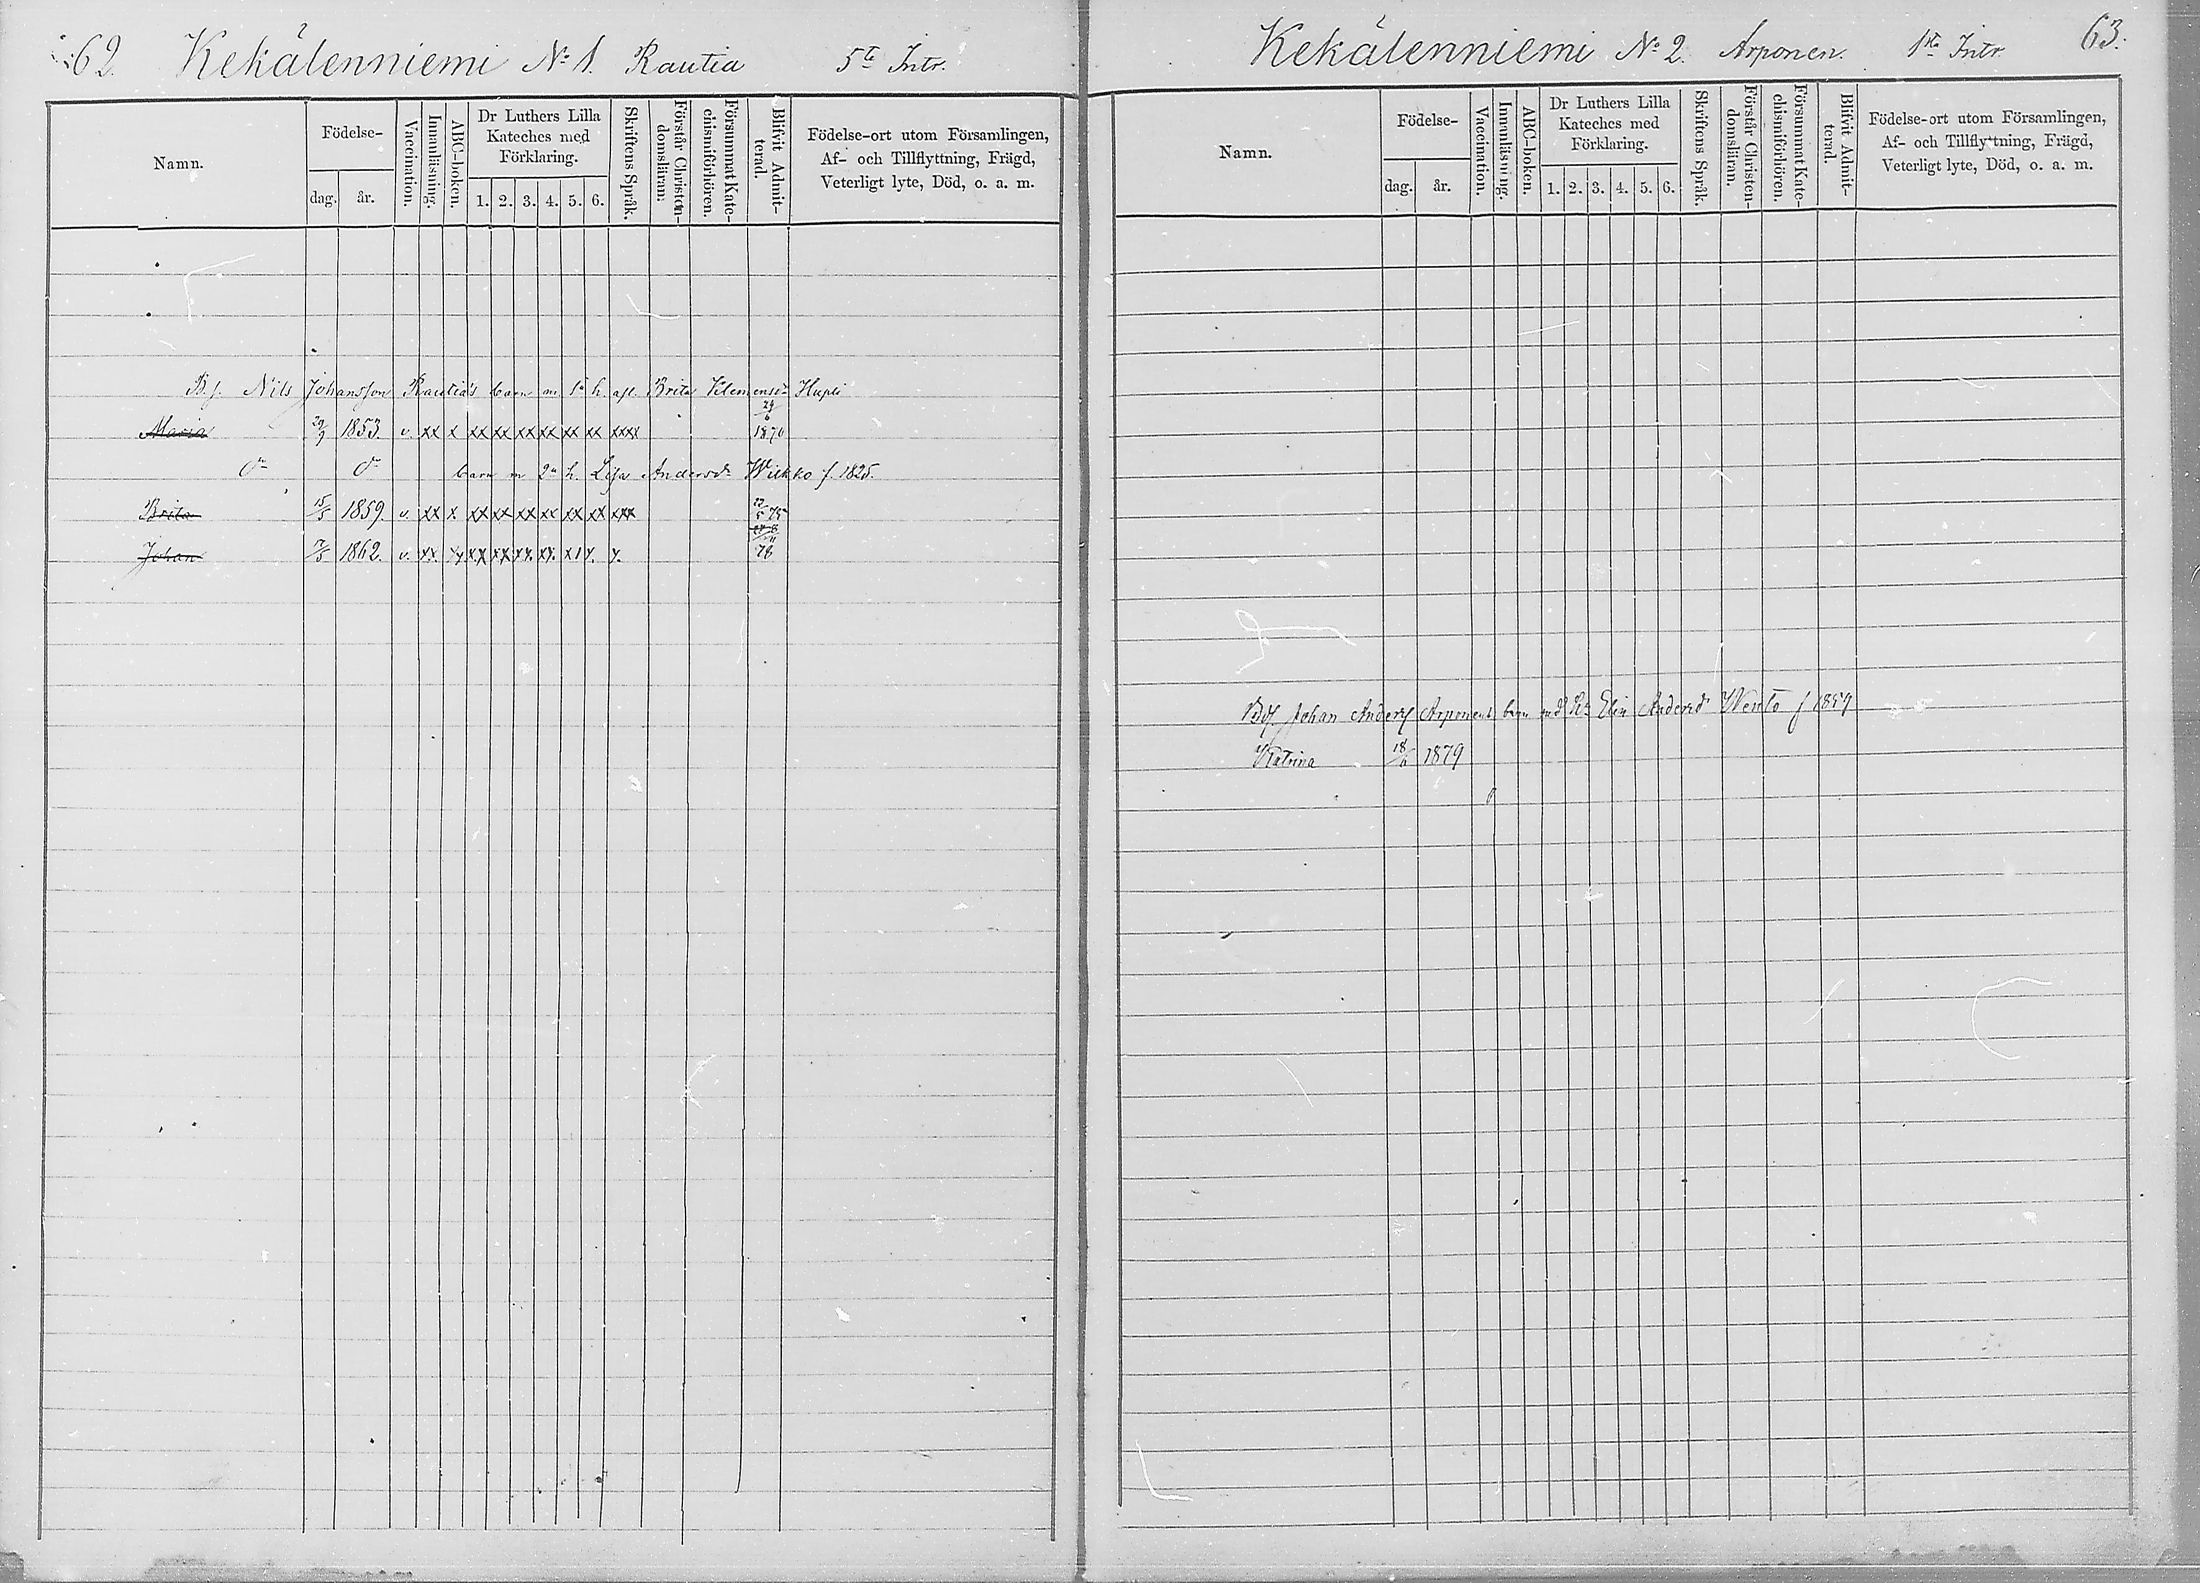 62. Kekälenniemi No 1. Rautia 5te Intr.
Namn.
Födelse-
dag. år.
Vaccination.
Innanläsning.
ABC-boken.
Dr Luthers Lilla
Kateches med
Förklaring.
1. 2. 3. 4. 5. 6.
Skriftens Språk.
Förstår Christen-
domsläran.
Försummat Kate-
chismiförhören.
Blifvit Admit-
terad.
Födelse-ort utom Församlingen,
Af- och Tillflyttning, Frägd,
Veterligt lyte, Död, o. a. m.
B.s. Nils Johansson Rautia's barn m 1a h. afl. Brita Klemensdr Hupli
Maria 29/9 1853. v. xx x xx xx xx xx xx xx xxxx 29/6 1870
do do barn m 2a h. Lisa Andersdr Wilkko f. 1825.
Brita 15/5 1859. v. xx x xx xx xx xx xx xx xxx 75
Johan 7/5 1862. v. xx. xx xx xx. xx. x. 78
Kekälenniemi No 2. Arponen. 1sta Intr. 63.
Namn.
Födelse-
dag. år.
Vaccination.
Innanläsning.
ABC-boken.
Dr Luthers Lilla
Kateches med
Förklaring.
1. 2. 3. 4. 5. 6.
Skriftens Språk.
Förstår Christen-
domsläran.
Försummat Kate-
chismiförhören.
Blifvit Admit-
terad.
Födelse-ort utom Församlingen,
Af- och Tillflyttning, Frägd,
Veterligt lyte, Död, o. a. m.
Johan Anders Arponens barn md Elin Andersdr Wento f 1859
Katrina 18/6 1879